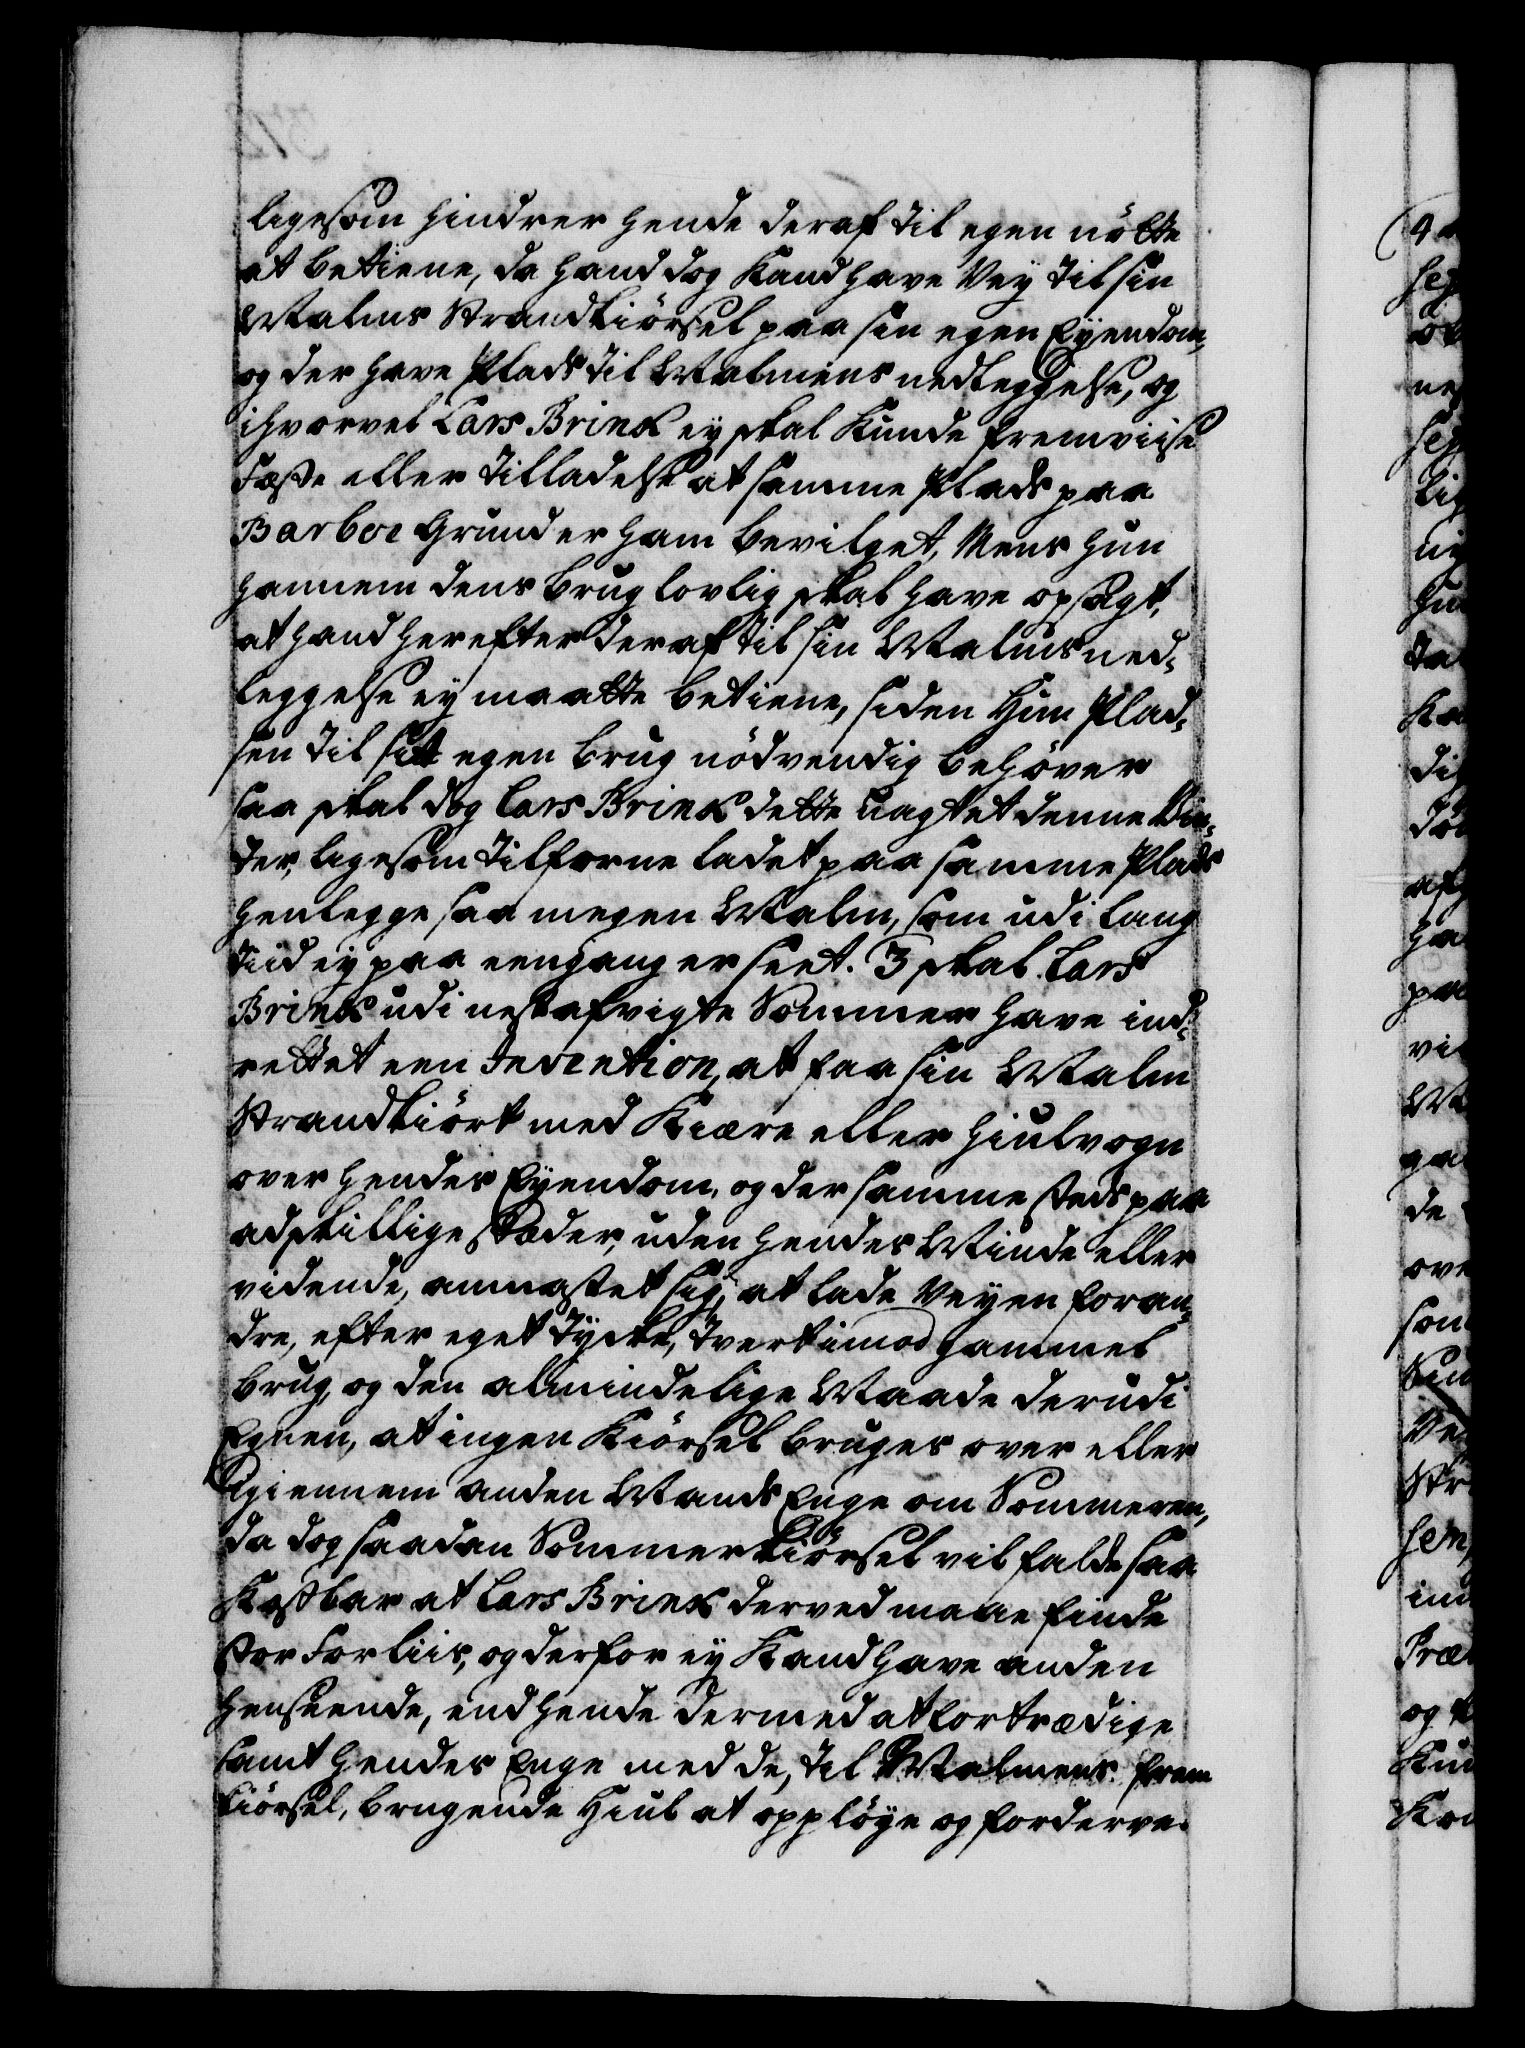 ligesom hindrer hende deraf til egen nötte
at betiene, da hand dog Kand have Vey til sin
Malms Strandkiörsel paa sin egen Eyendom,
og der have Plads til Malmens nedleggelse, og
ihvorvel Lars Brinck ey skal Kunde fremviise
Fæste eller tilladelse at samme Plads paa
Barboe Grund er ham bevilget, Mens hun
hannem dens brug lovlig skal have opsagt,
at hand herefter deraf til sin Malms ned-
leggelse ey maatte betiene, siden Hun Plad-
sen til sitt egen brug nödvendig behöver
saa skal dog Lars Brinck dette uagtet denne Vin-
ter, ligesom tilforne ladet paa samme Plads
henlegge saa megen Malm, som udi lang
tiid ey paa eengang er seet. 3 skal Lars
Brinck udi nestafvigte Sommer have ind-
rettet een Invention, at faa sin Malm
Strandkiört med Kiære eller hiulvogn
over hendes Eyendom, og der samme steds paa
adskillige stæder, uden hendes Minde eller
vidende, anmastet sig, at lade Veyen foran-
dre, efter eget Tycke, tvertimod gammel
brug, og den almindelige Maade derudi
Egnen, at ingen Kiörsel bruges over eller
igiennem anden Mands Enge om Sommeren,
da dog saadan Sommerkiörsel vil falde saa
Kostbar at Lars Brinck derved maae finde
stor Forliis, og derfor ey Kand have anden
henseende, end hende dermed at fortrædige
samt hendes Enge med de, til Malmens frem
kiörsel, brugende Hiul at opplöye og forderve.